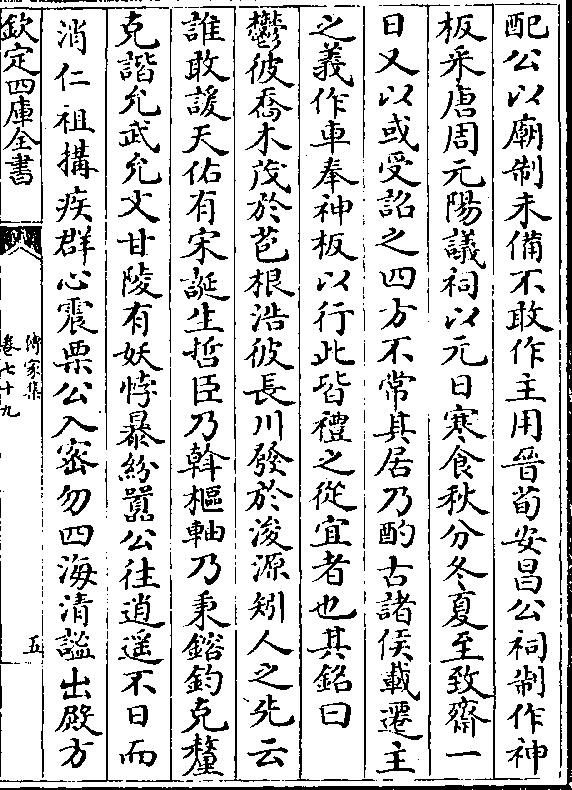 配公以廟制未備不敢作主用晉荀安昌公祠制作神
板采唐周元陽議祠以元日寒食秋分冬夏至致齋一
日又以或受詔之四方不常其居乃酌古諸侯載遷主
之義作車奉神板以行此皆禮之從宜者也其銘曰
鬱彼喬木茂於苞根浩彼長川發於浚源矧人之先云
誰敢諼天佑有宋誕生哲臣乃斡樞軸乃秉鎔鈞克釐
克諧允武允文甘陵有妖悖暴紛囂公往逍遥不日而
消仁祖搆疾群心震栗公入密勿四海清謐出殿方
欽定四庫全書
傳家集
卷七十九
五